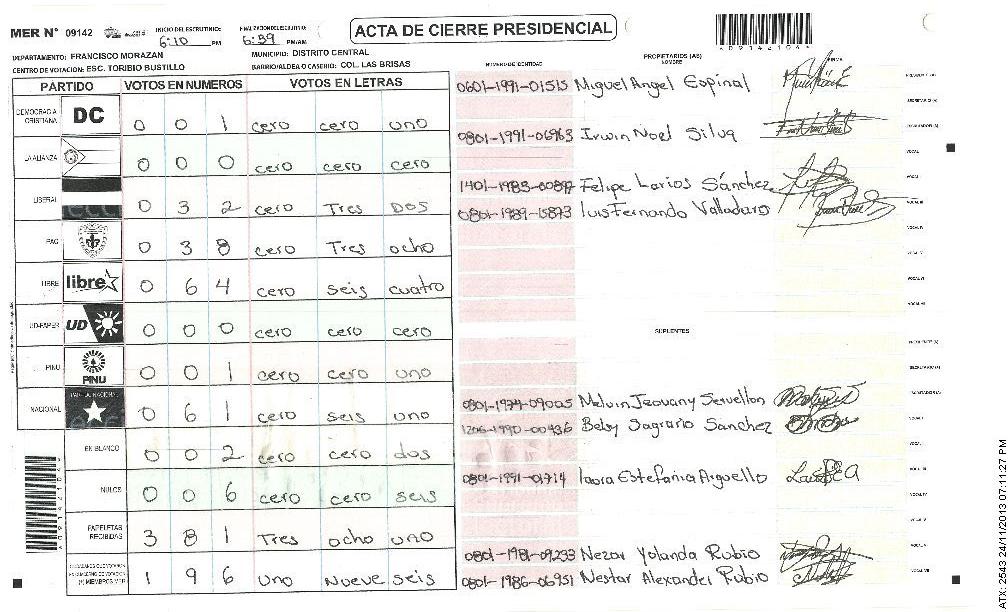 MER N° 09142 INICIO DE ESCRUTINIO: 6:10 PM FINALIZACION DE ESCRUTINIO: 6:59 PM/AM
ACTA DE CIERRE PRESIDENCIAL
DEPARTAMENTO: FRANCISCO MORAZAN MUNICIPIO: DISTRITO CENTRAL
CENTRO DE VOTACION: ESC. TORIBIO BUSTILLO BARRIO/ALDEA O CASERIO: COL. LAS BRISAS
PARTIDO VOTOS EN NUMEROS VOTOS EN LETRAS
DEMOCRACIA CRISTIANA DC 0 0 1 cero cero uno
LA ALIANZA 0 0 0 cero cero cero
LIBERAL 0 3 2 cero Tres Dos
PAC 0 3 8 cero Tres ocho
LIBRE libre 0 6 4 cero seis cuatro
UD-FAPER UD 0 0 0 cero cero cero
PINU PINU 0 0 1 cero cero uno
NACIONAL 0 6 1 cero seis uno
EN BLANCO 0 0 2 cero cero dos
NULOS 0 0 6 cero cero seis
PAPELETAS RECIBIDAS 3 8 1 Tres ocho uno
(+) MIEMBROS MER 1 9 6 uno nueve seis
NUMERO DE IDENTIDAD PROPIETARIOS (AS) NOMBRE FIRMA
0601-1991-01515 Miguel Angel Espinal
0801-1991-06963 Irwin Noel Silva
1401-1983-00897 Felipe Larios Sánchez
0801-1989-15873 Luis Fernando Valladaro
SUPLENTES
0801-1974-09005 Melvin Jeovany Servellon
1206-1990-00436 Belsy Sagrario Sanchez
0801-1991-01714 laura Estefania Arguello
0801-1981-09233 Nezar Yolanda Rubio
0801-1986-06951 Nestar Alexander Rubio
ATX: 2543 24/11/2013 07:11:27 PM